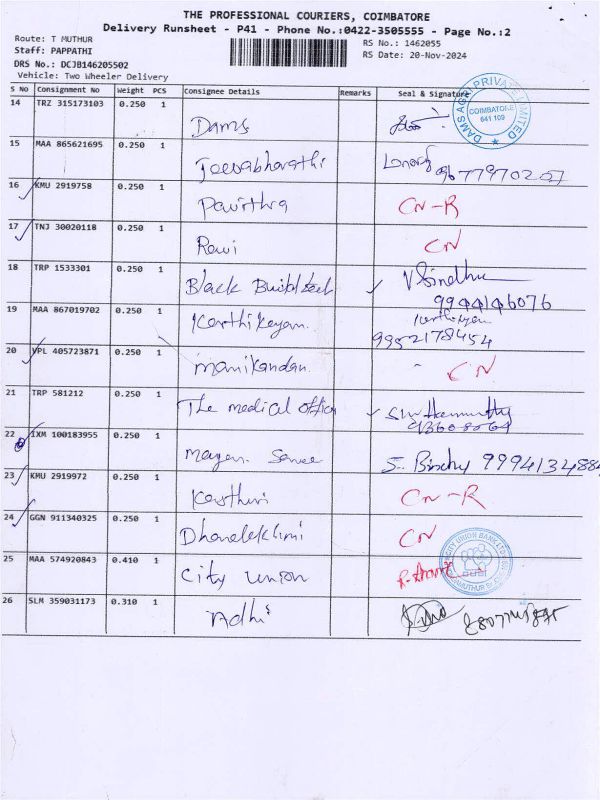 THE PROFESSIONAL COURIERS, COIMBATORE
Delivery Runsheet - P41 - Phone No.:0422-3505555 - Page No.:2
Route: T MUTHUR
RS No.: 1462055
Staff: PAPPATHI
RS Date: 20-Nov-2024
DRS No.: DCJB146205502
Vehicle: Two Wheeler Delivery
S No Consignment No Weight PCS Consignee Details Remarks Seal & Signature
14 TRZ 315173103 0.250 1 Dams
DAMS AGRI PRIVATE LIMITED
COIMBATORE
641 109
15 MAA 865621695 0.250 1
16 KMU 2919758 0.250 1 Pavithra CN-R
17 TNJ 30020118 0.250 1 Ravi CN
18 TRP 1533301 0.250 1 Black Buildtech V Sindhu
9944146076
19 MAA 867019702 0.250 1 Karthikeyan. Karthikeyan
9952178454
20 VPL 405723871 0.250 1 Manikandan. CN
21 TRP 581212 0.250 1 The medical officer
22 IXM 100183955 0.250 1 S. Binchy 9994134884
23 KMU 2919972 0.250 1 Kasthuri CN-R
24 GGN 911340325 0.250 1 Dhanalekshmi CN
25 MAA 574920843 0.410 1 City Union
26 SLM 359031173 0.310 1 Adhi